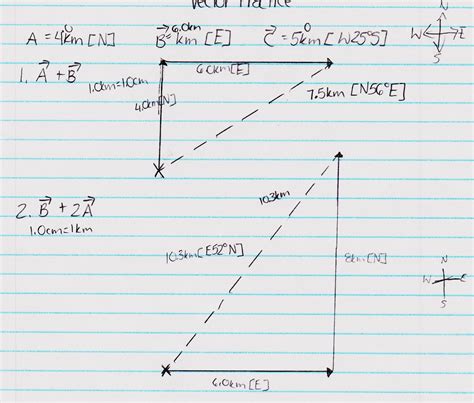 Vector Practice
A = 4.0km [N] B = 6.0km [E] C = 5.0km [W25°S]
N
W E
S
1. A + B
1.0km=1.0cm
6.0km[E]
4.0km[N]
7.5km [N56°E]
2. B + 2A
1.0cm=1km
10.3km
10.3km[E52°N]
8km [N]
N
W E
S
6.0km [E]